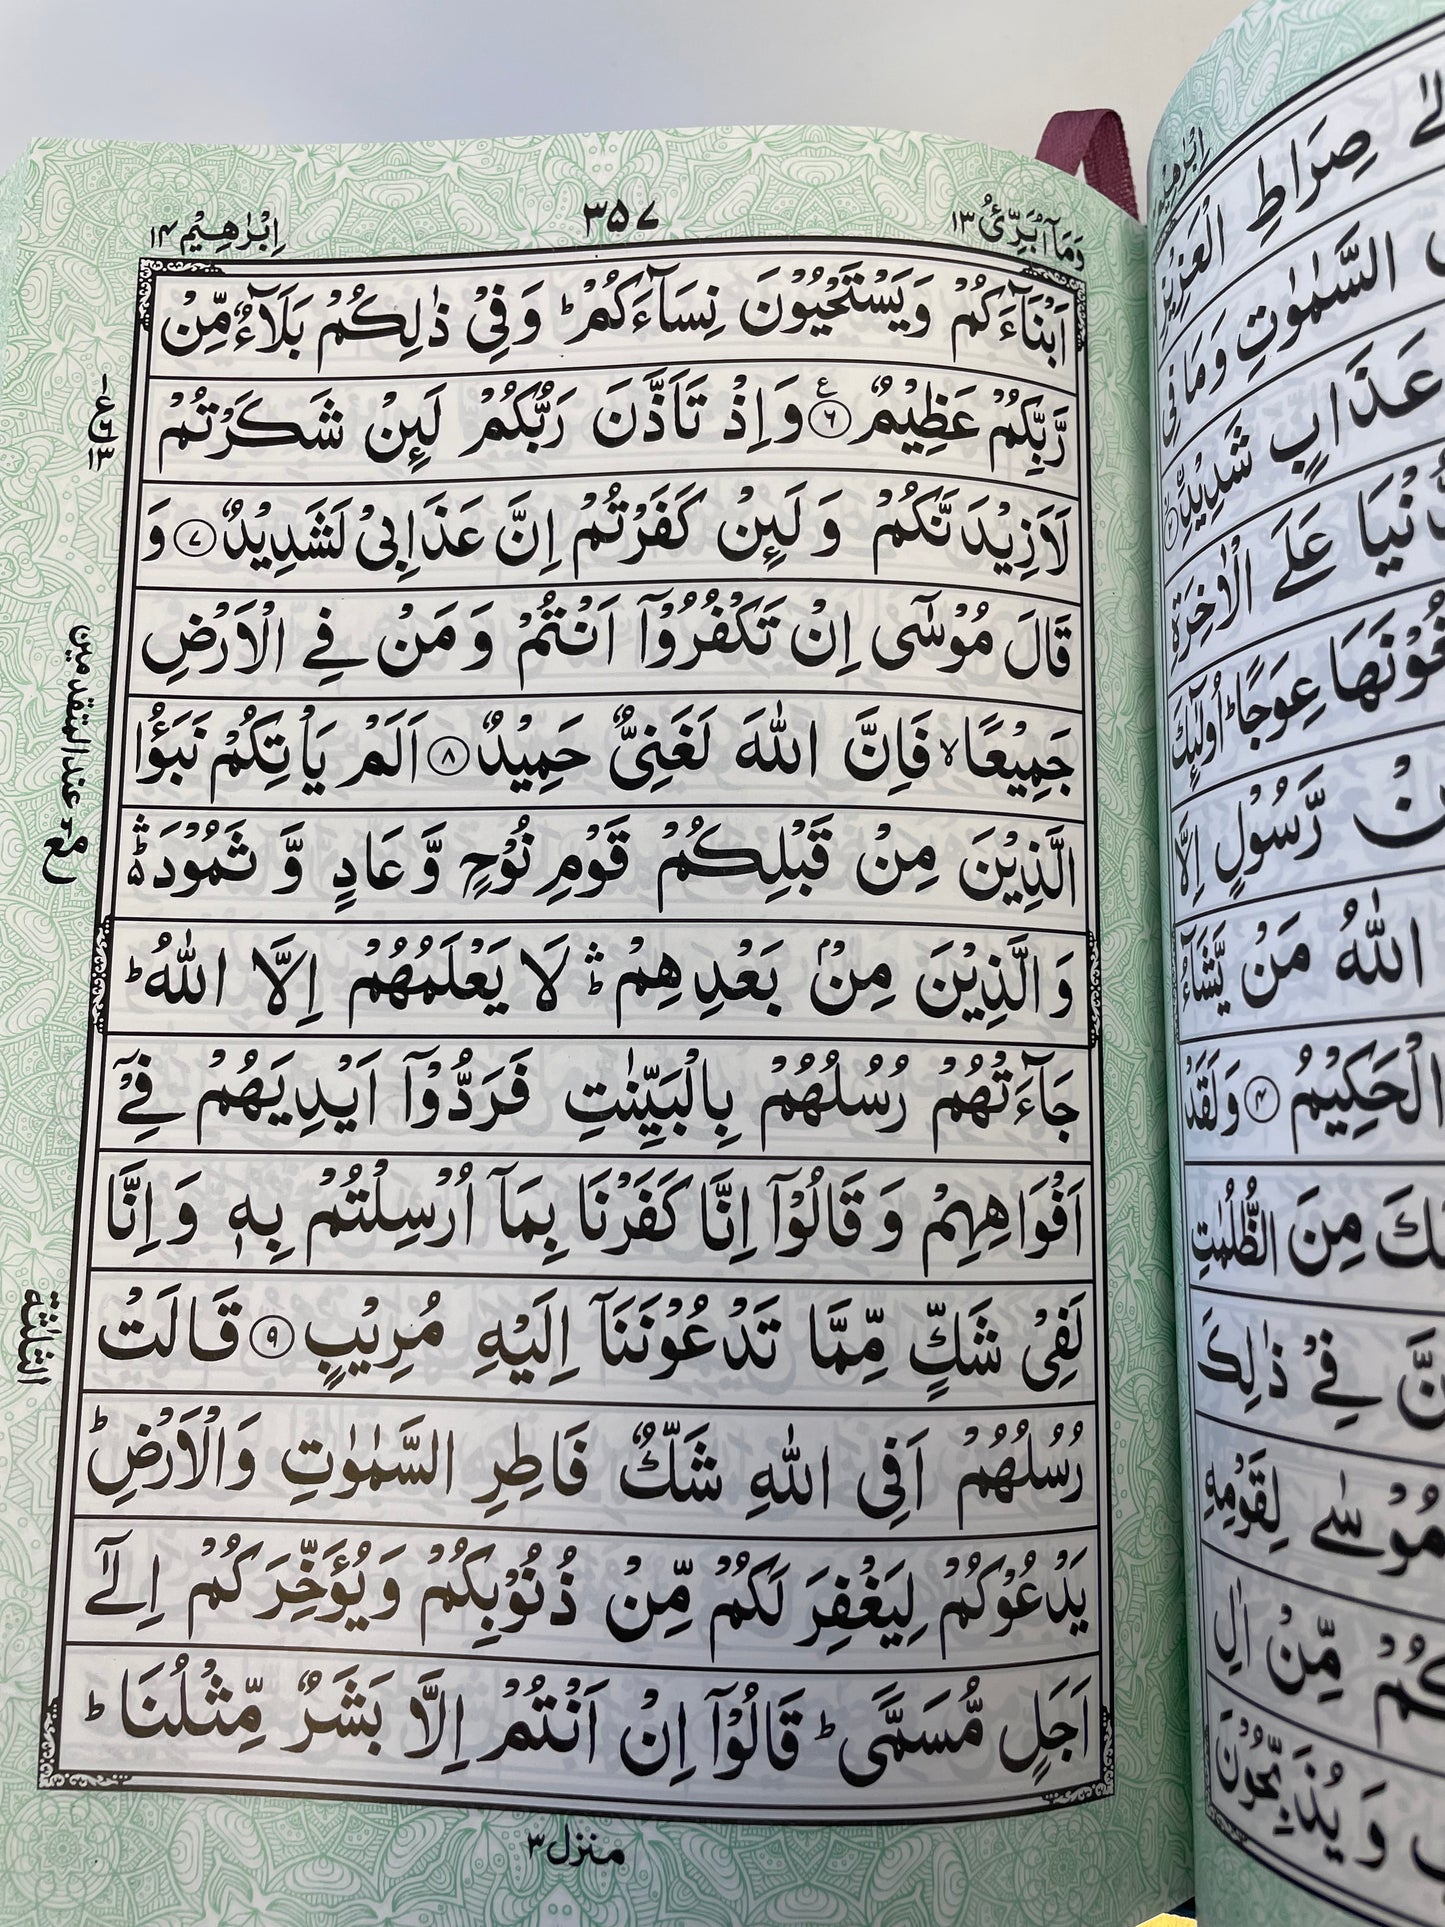 وَمَاۤ اُبَرِّئُ ١٣
٣٥٧
اِبْرٰهِيْم ١٤
اَبْنَآءَكُمْ وَيَسْتَحْيُوْنَ نِسَآءَكُمْ ؕ وَفِيْ ذٰلِكُمْ بَلَآءٌ مِّنْ
رَّبِّكُمْ عَظِيْمٌ ۝٦ ع وَاِذْ تَاَذَّنَ رَبُّكُمْ لَئِنْ شَكَرْتُمْ
لَاَزِيْدَنَّكُمْ وَلَئِنْ كَفَرْتُمْ اِنَّ عَذَابِيْ لَشَدِيْدٌ ۝٧ وَ
قَالَ مُوْسٰٓى اِنْ تَكْفُرُوْٓا اَنْتُمْ وَمَنْ فِي الْاَرْضِ
جَمِيْعًا ۙ فَاِنَّ اللّٰهَ لَغَنِيٌّ حَمِيْدٌ ۝٨ اَلَمْ يَاْتِكُمْ نَبَؤُا
الَّذِيْنَ مِنْ قَبْلِكُمْ قَوْمِ نُوْحٍ وَّعَادٍ وَّثَمُوْدَ ۛؕ
وَالَّذِيْنَ مِنْۢ بَعْدِهِمْ ۛؕ لَا يَعْلَمُهُمْ اِلَّا اللّٰهُ ؕ
جَآءَتْهُمْ رُسُلُهُمْ بِالْبَيِّنٰتِ فَرَدُّوْٓا اَيْدِيَهُمْ فِيْٓ
اَفْوَاهِهِمْ وَقَالُوْٓا اِنَّا كَفَرْنَا بِمَآ اُرْسِلْتُمْ بِهٖ وَاِنَّا
لَفِيْ شَكٍّ مِّمَّا تَدْعُوْنَنَآ اِلَيْهِ مُرِيْبٍ ۝٩ قَالَتْ
رُسُلُهُمْ اَفِي اللّٰهِ شَكٌّ فَاطِرِ السَّمٰوٰتِ وَالْاَرْضِ ؕ
يَدْعُوْكُمْ لِيَغْفِرَ لَكُمْ مِّنْ ذُنُوْبِكُمْ وَيُؤَخِّرَكُمْ اِلٰٓى
اَجَلٍ مُّسَمًّى ؕ قَالُوْٓا اِنْ اَنْتُمْ اِلَّا بَشَرٌ مِّثْلُنَا ؕ
منزل ٣
مع عند المتقدمين
الثلثة
صِرَاطِ الْعَزِيْزِ
السَّمٰوٰتِ وَمَا فِي
عَذَابٍ شَدِيْدِ ۝٢
عَلَى الْاٰخِرَةِ
عِوَجًا ؕ اُولٰٓئِكَ
رَّسُوْلٍ اِلَّا
اللّٰهُ مَنْ يَّشَآءُ
الْحَكِيْمُ ۝٤ وَلَقَدْ
مِنَ الظُّلُمٰتِ
فِيْ ذٰلِكَ
مُوْسٰى لِقَوْمِهِ
مِّنْ اٰلِ
وَيُذَبِّحُوْنَ